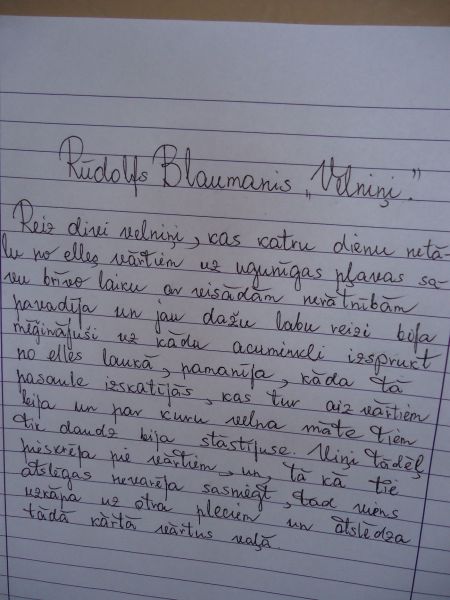 Rūdolfs Blaumanis „Velniņi."
Reiz divi velniņi, kas katru dienu netā-
lu no elles vārtiem uz ugunīgas pļavas sa-
vu brīvo laiku ar visādām nerātnībām
pavadīja un jau dažu labu reizi bija
mēģinājuši uz kādu acumirkli izsprukt
no elles laukā, pamanīja, kāda tā
pasaule izskatījās, kas tur aiz vārtiem
bija un par kuru velna māte tiem
tik daudz bija stāstījuse. Viņi tādēļ
pieskrēja pie vārtiem, un, tā kā tie
atslēgas nevarēja sasniegt, tad viens
uzkāpa uz otra pleciem un atslēdza
tādā kārtā vārtus vaļā.